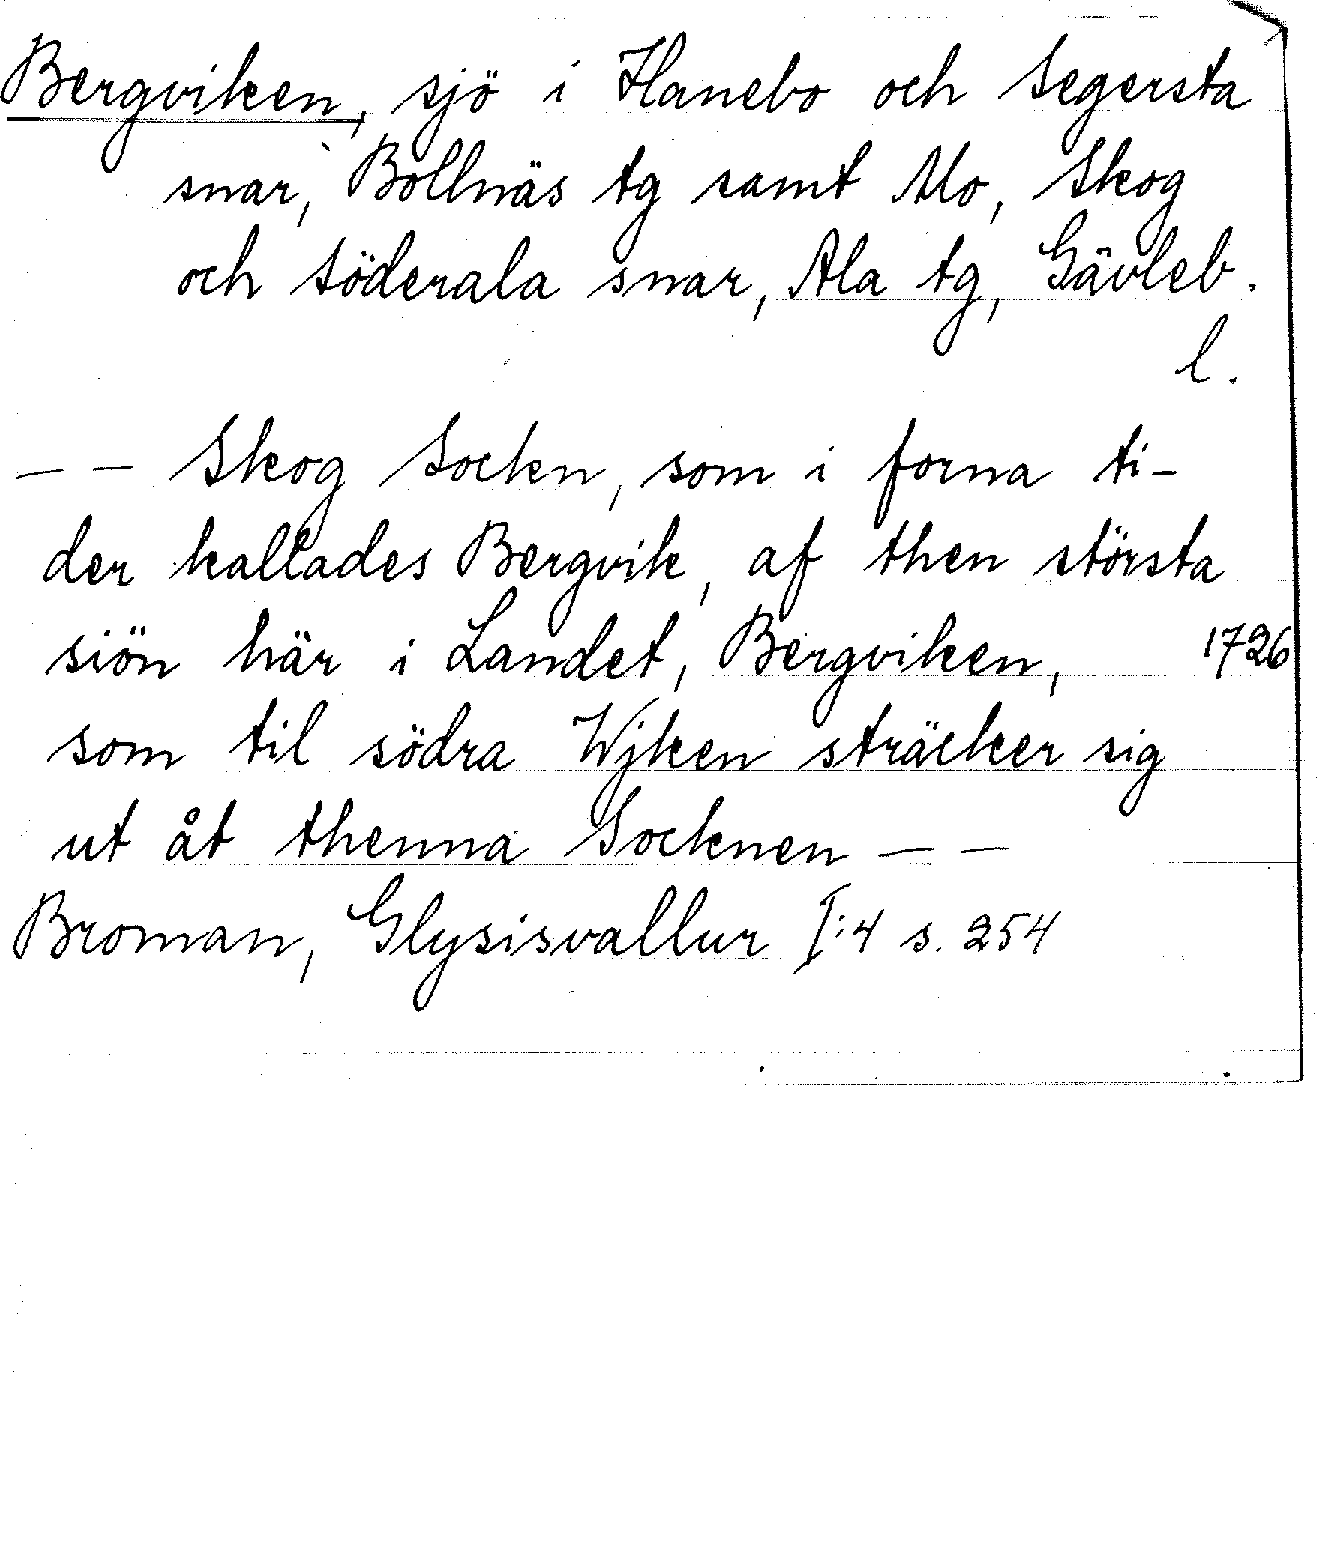 Bergviken, sjö i Hanebo och Segersta
snar, Bollnäs tg samt Mo, Skog
och Söderala snar, Ala tg, Gävleb.
l.
— — Skog Sockn, som i forna ti-
der kallades Bergvik, af then största
siön här i Landet, Bergviken, 1726
som til södra Wjken sträcker sig
ut åt thenna Socknen — —
Broman, Glysisvallur I:4 s. 254